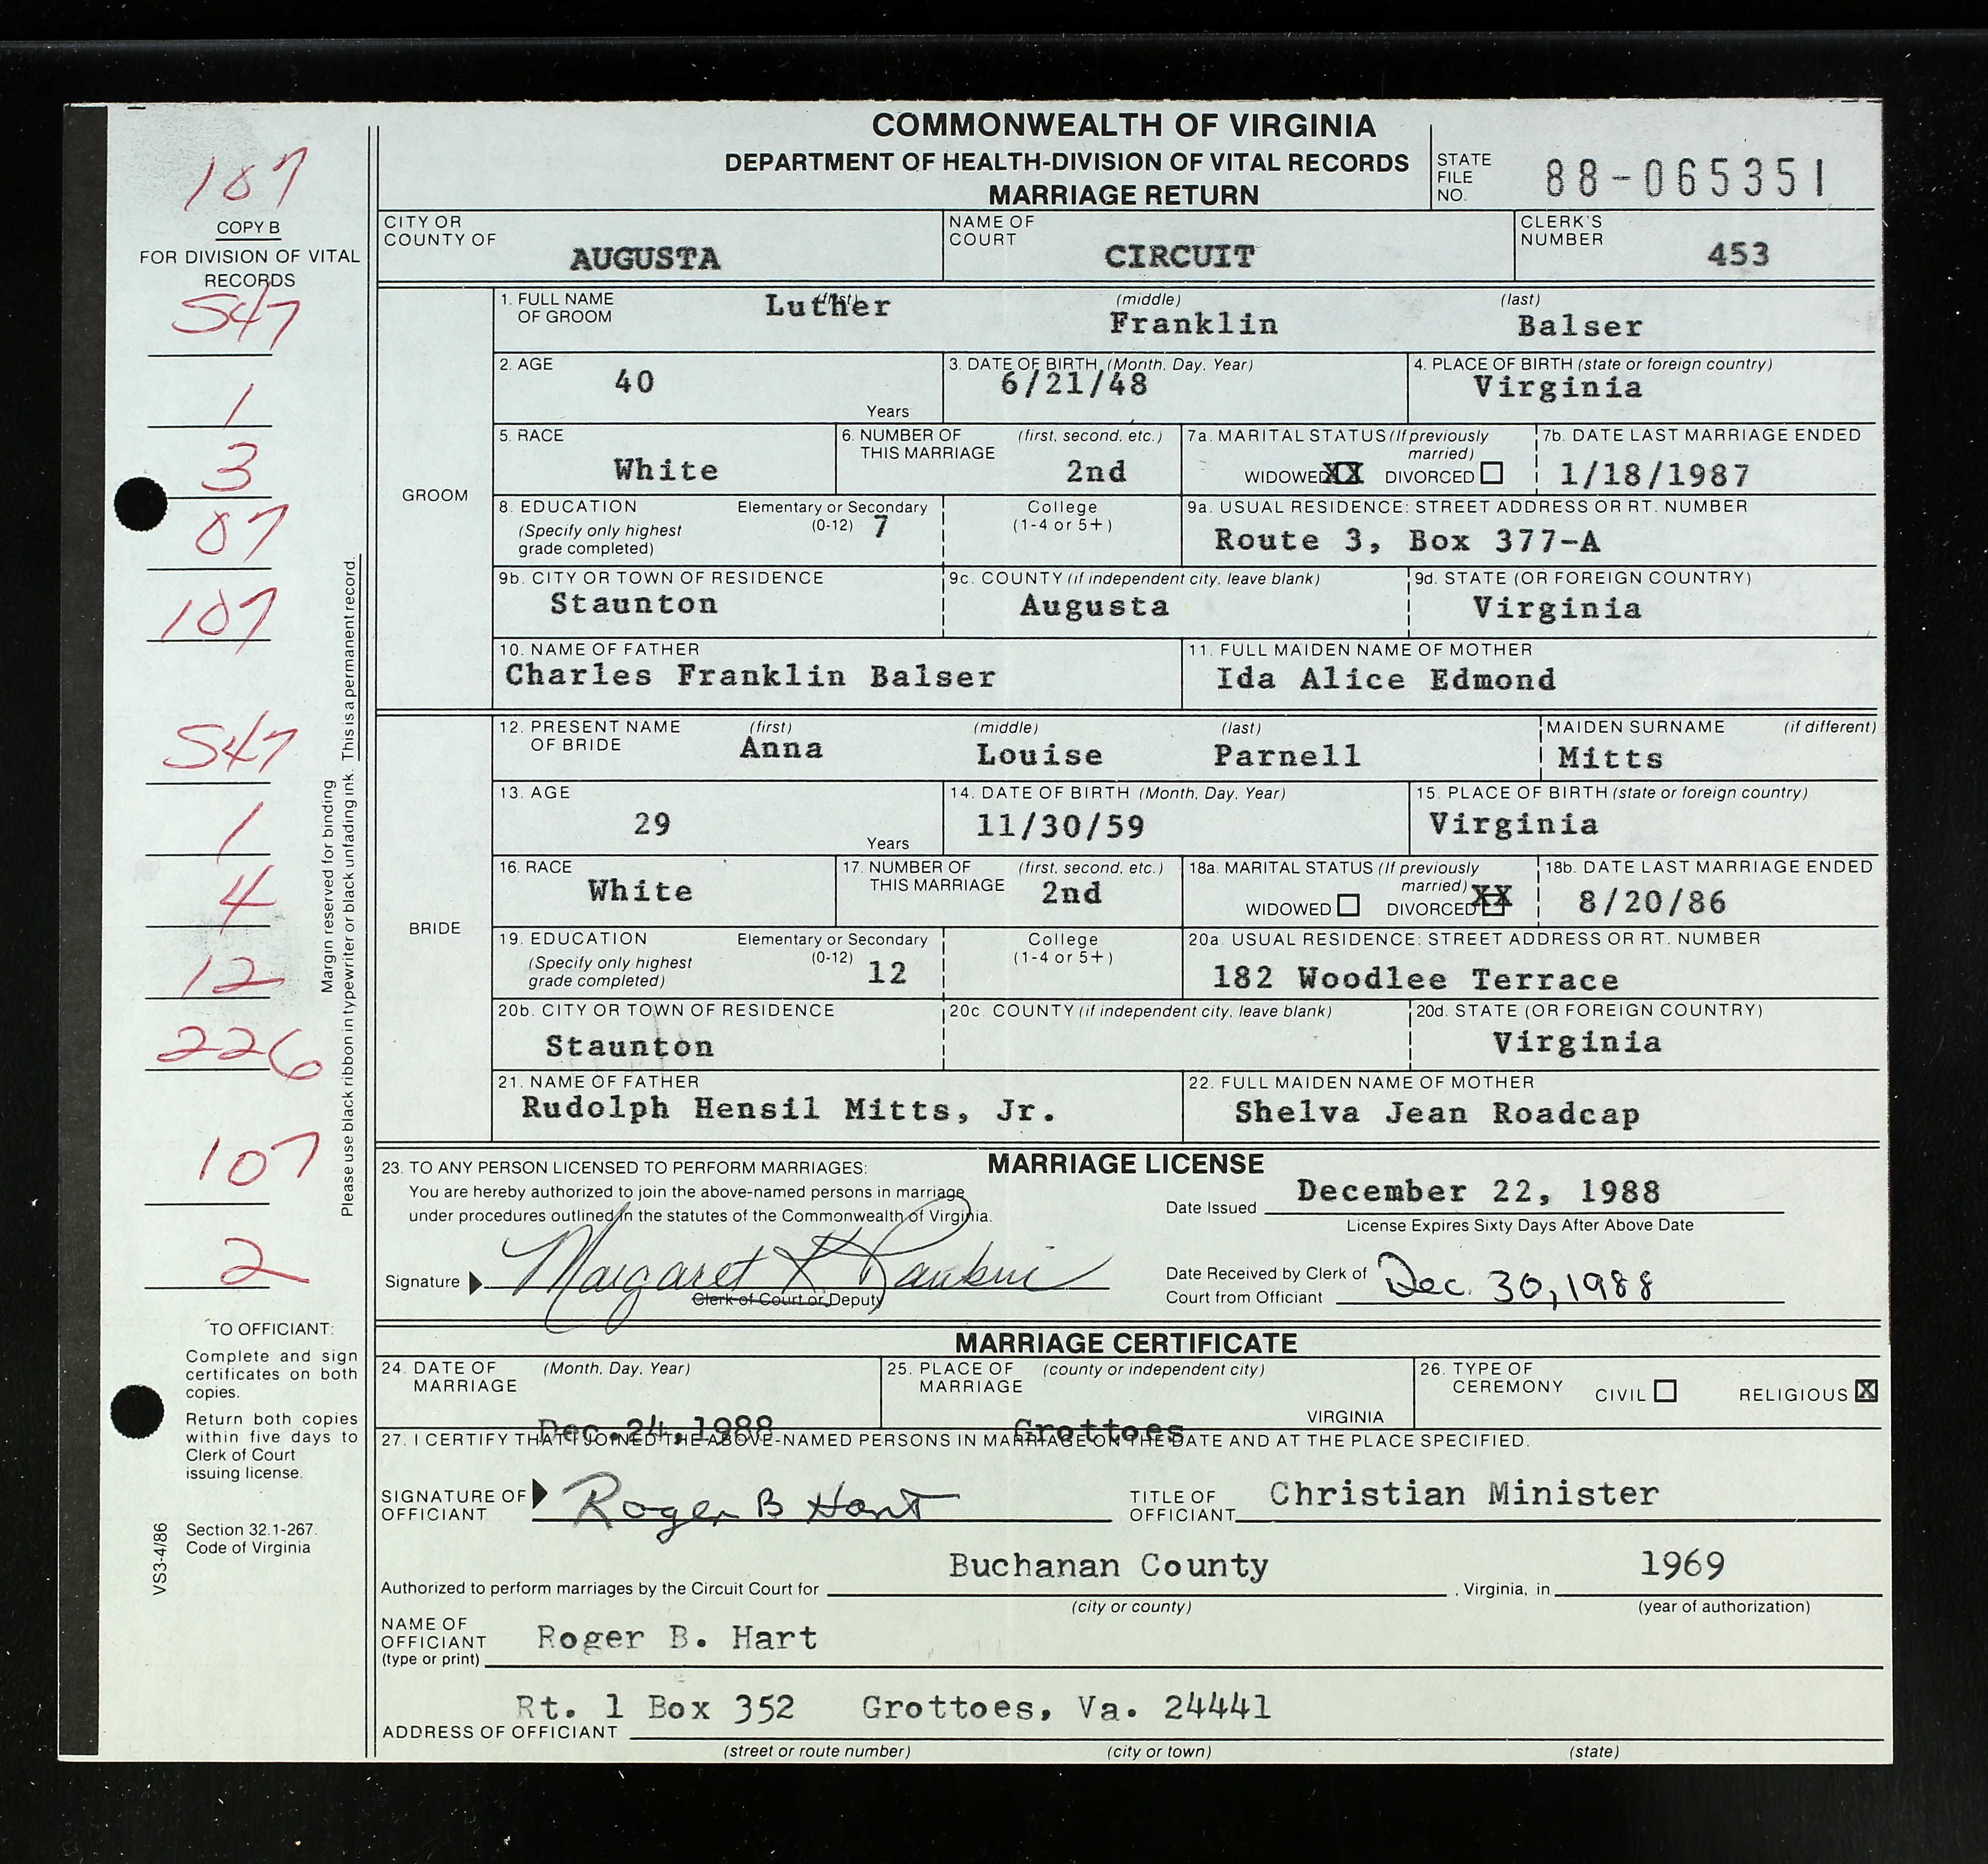 COMMONWEALTH OF VIRGINIA
DEPARTMENT OF HEALTH-DIVISION OF VITAL RECORDS
MARRIAGE RETURN
STATE FILE NO. 88-065351
CITY OR COUNTY OF AUGUSTA
NAME OF COURT CIRCUIT
CLERK'S NUMBER 453
107
COPY B
FOR DIVISION OF VITAL RECORDS
547
1
3
07
107
547
1
4
12
226
107
2
Margin reserved for binding
Please use black ribbon in typewriter or black unfading ink. This is a permanent record.
TO OFFICIANT:
Complete and sign
certificates on both
copies.
Return both copies
within five days to
Clerk of Court
issuing license.
Section 32.1-267.
Code of Virginia
VS3-4/86
GROOM
1. FULL NAME OF GROOM (first) Luther (middle) Franklin (last) Balser
2. AGE 40 Years
3. DATE OF BIRTH (Month, Day, Year) 6/21/48
4. PLACE OF BIRTH (state or foreign country) Virginia
5. RACE White
6. NUMBER OF THIS MARRIAGE (first, second, etc.) 2nd
7a. MARITAL STATUS (If previously married) WIDOWED XX DIVORCED
7b. DATE LAST MARRIAGE ENDED 1/18/1987
8. EDUCATION (Specify only highest grade completed) Elementary or Secondary (0-12) 7 College (1-4 or 5+)
9a. USUAL RESIDENCE: STREET ADDRESS OR RT. NUMBER Route 3, Box 377-A
9b. CITY OR TOWN OF RESIDENCE Staunton
9c. COUNTY (if independent city, leave blank) Augusta
9d. STATE (OR FOREIGN COUNTRY) Virginia
10. NAME OF FATHER Charles Franklin Balser
11. FULL MAIDEN NAME OF MOTHER Ida Alice Edmond
BRIDE
12. PRESENT NAME OF BRIDE (first) Anna (middle) Louise (last) Parnell MAIDEN SURNAME (if different) Mitts
13. AGE 29 Years
14. DATE OF BIRTH (Month, Day, Year) 11/30/59
15. PLACE OF BIRTH (state or foreign country) Virginia
16. RACE White
17. NUMBER OF THIS MARRIAGE (first, second, etc.) 2nd
18a. MARITAL STATUS (If previously married) WIDOWED DIVORCED XX
18b. DATE LAST MARRIAGE ENDED 8/20/86
19. EDUCATION (Specify only highest grade completed) Elementary or Secondary (0-12) 12 College (1-4 or 5+)
20a. USUAL RESIDENCE: STREET ADDRESS OR RT. NUMBER 182 Woodlee Terrace
20b. CITY OR TOWN OF RESIDENCE Staunton
20c. COUNTY (if independent city, leave blank)
20d. STATE (OR FOREIGN COUNTRY) Virginia
21. NAME OF FATHER Rudolph Hensil Mitts, Jr.
22. FULL MAIDEN NAME OF MOTHER Shelva Jean Roadcap
MARRIAGE LICENSE
23. TO ANY PERSON LICENSED TO PERFORM MARRIAGES:
You are hereby authorized to join the above-named persons in marriage
under procedures outlined in the statutes of the Commonwealth of Virginia.
Date Issued December 22, 1988
License Expires Sixty Days After Above Date
Signature Margaret K Rankin
Clerk of Court or Deputy
Date Received by Clerk of Court from Officiant Dec. 30, 1988
MARRIAGE CERTIFICATE
24. DATE OF MARRIAGE (Month, Day, Year) Dec. 24, 1988
25. PLACE OF MARRIAGE (county or independent city) Grottoes VIRGINIA
26. TYPE OF CEREMONY CIVIL RELIGIOUS X
27. I CERTIFY THAT I JOINED THE ABOVE-NAMED PERSONS IN MARRIAGE ON THE DATE AND AT THE PLACE SPECIFIED.
SIGNATURE OF OFFICIANT Roger B Hart
TITLE OF OFFICIANT Christian Minister
Authorized to perform marriages by the Circuit Court for Buchanan County, Virginia, in 1969
(city or county) (year of authorization)
NAME OF OFFICIANT (type or print) Roger B. Hart
ADDRESS OF OFFICIANT Rt. 1 Box 352 Grottoes, Va. 24441
(street or route number) (city or town) (state)